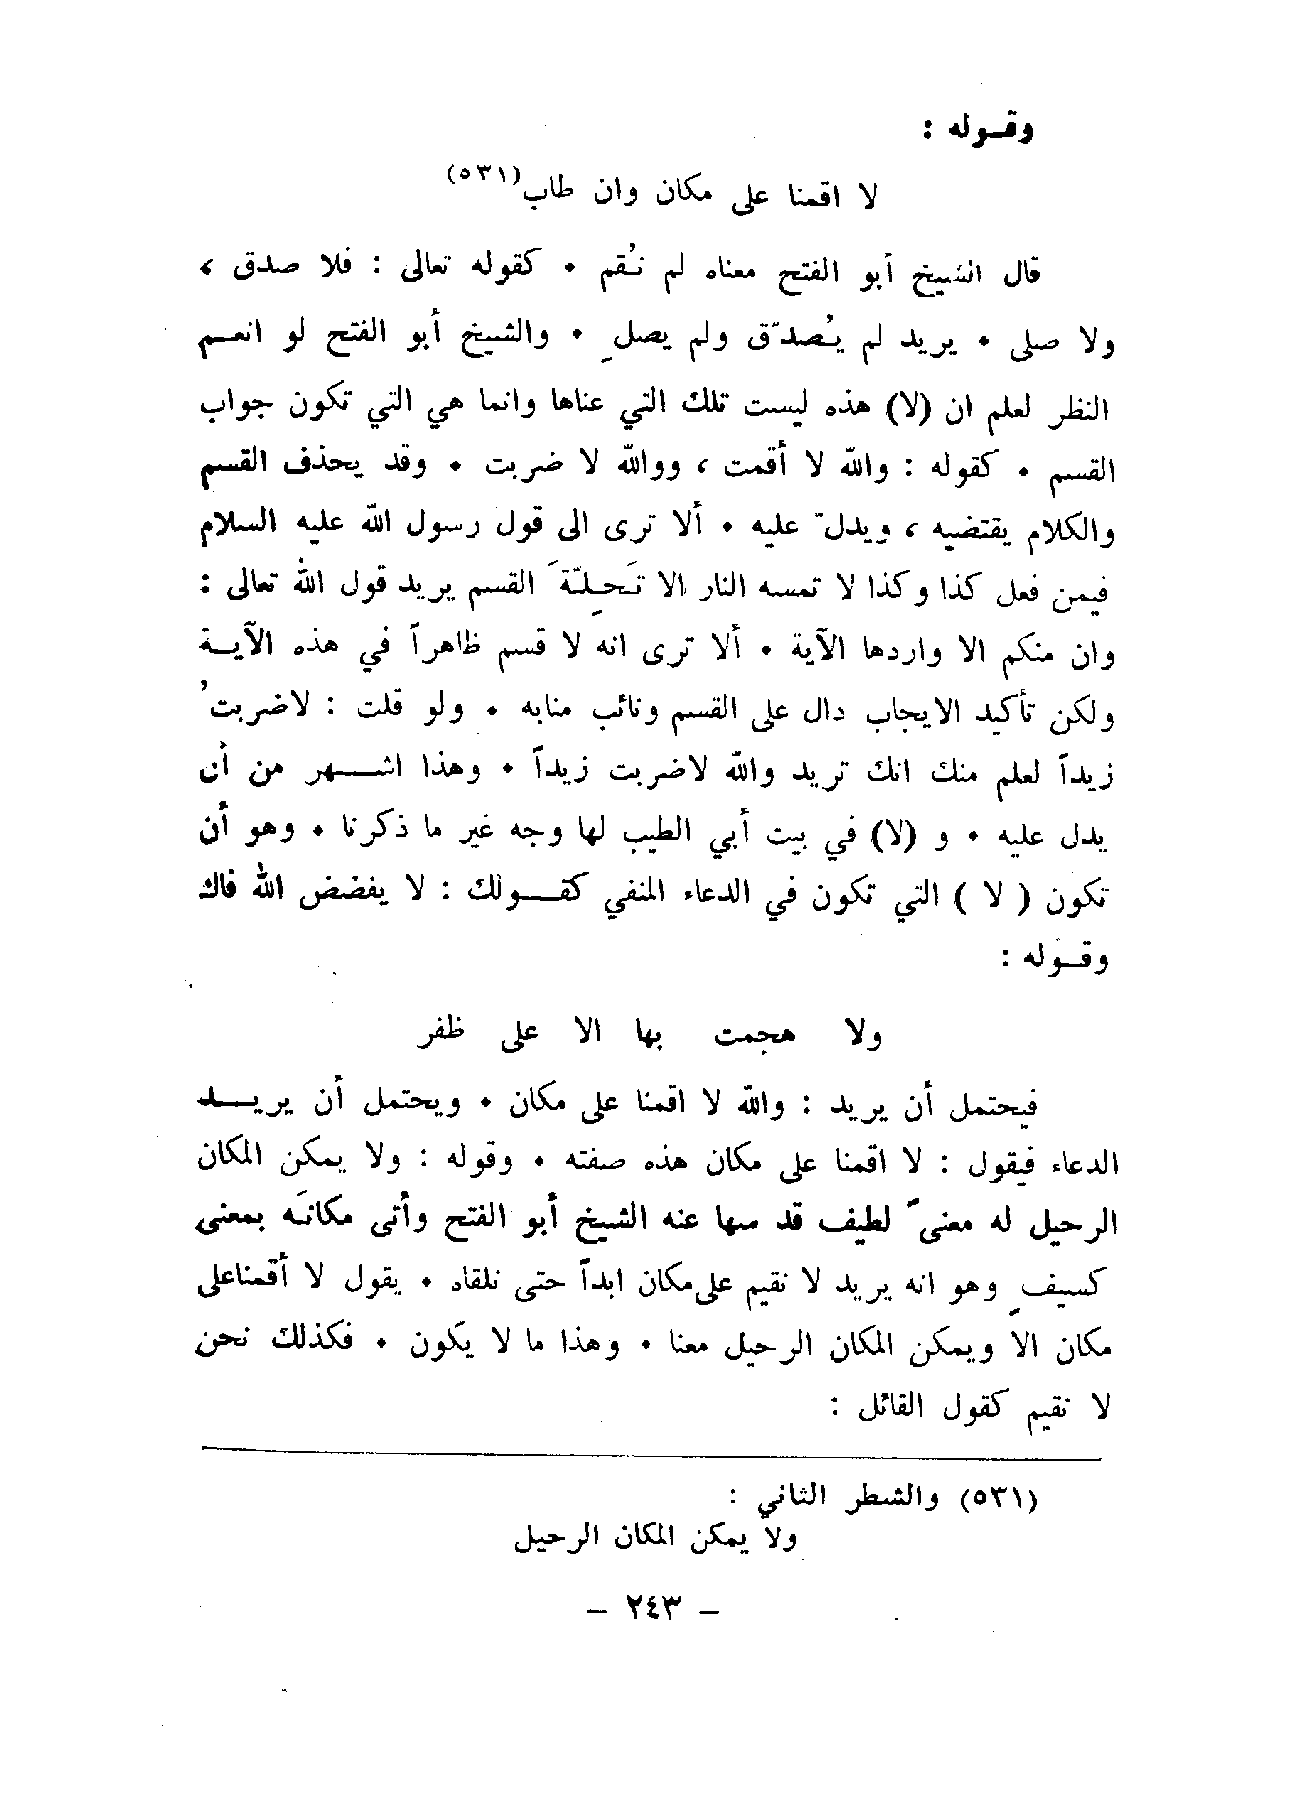 وقـوله :
لا اقمنا على مكان وان طاب(٥٣١)
قال الشيخ أبو الفتح معناه لم نُقم ٠ كقوله تعالى : فلا صدق ،
ولا صلى ٠ يريد لم يُصدّق ولم يصلِ ٠ والشيخ أبو الفتح لو انعـم
النظر لعلم ان (لا) هذه ليست تلك التي عناها وانما هي التي تكون جواب
القسم ٠ كقوله : والله لا أقمت ، ووالله لا ضربت ٠ وقد يحذف القسم
والكلام يقتضيه ، ويدلّ عليه ٠ ألا ترى الى قول رسول الله عليه السلام
فيمن فعل كذا وكذا لا تمسه النار الا تَحِلّةَ القسم يريد قول الله تعالى :
وان منكم الا واردها الآية ٠ ألا ترى انه لا قسم ظاهراً في هذه الآيـة
ولكن تأكيد الايجاب دال على القسم ونائب منابه ٠ ولو قلت : لاضربتُ
زيداً لعلم منك انك تريد والله لاضربت زيداً ٠ وهذا اشـــهر من أن
يدل عليه ٠ و (لا) في بيت أبي الطيب لها وجه غير ما ذكرنا ٠ وهو أن
تكون ( لا ) التي تكون في الدعاء المنفي كقـــولك : لا يفضض الله فاك
وقـوله :
ولا هجمت بها الا على ظفر
فيحتمل أن يريد : والله لا اقمنا على مكان ٠ ويحتمل أن يريـــد
الدعاء فيقول : لا اقمنا على مكان هذه صفته ٠ وقوله : ولا يمكن المكان
الرحيل له معنىً لطيف قد سها عنه الشيخ أبو الفتح وأتى مكانَه بمعنى
كسيفٍ وهو انه يريد لا نقيم على مكان ابداً حتى نلقاه ٠ يقول لا أقمناعلى
مكان الا ويمكن المكان الرحيل معنا ٠ وهذا ما لا يكون ٠ فكذلك نحن
لا نقيم كقول القائل :
(٥٣١) والشطر الثاني :
ولا يمكن المكان الرحيل
– ٢٤٣ –